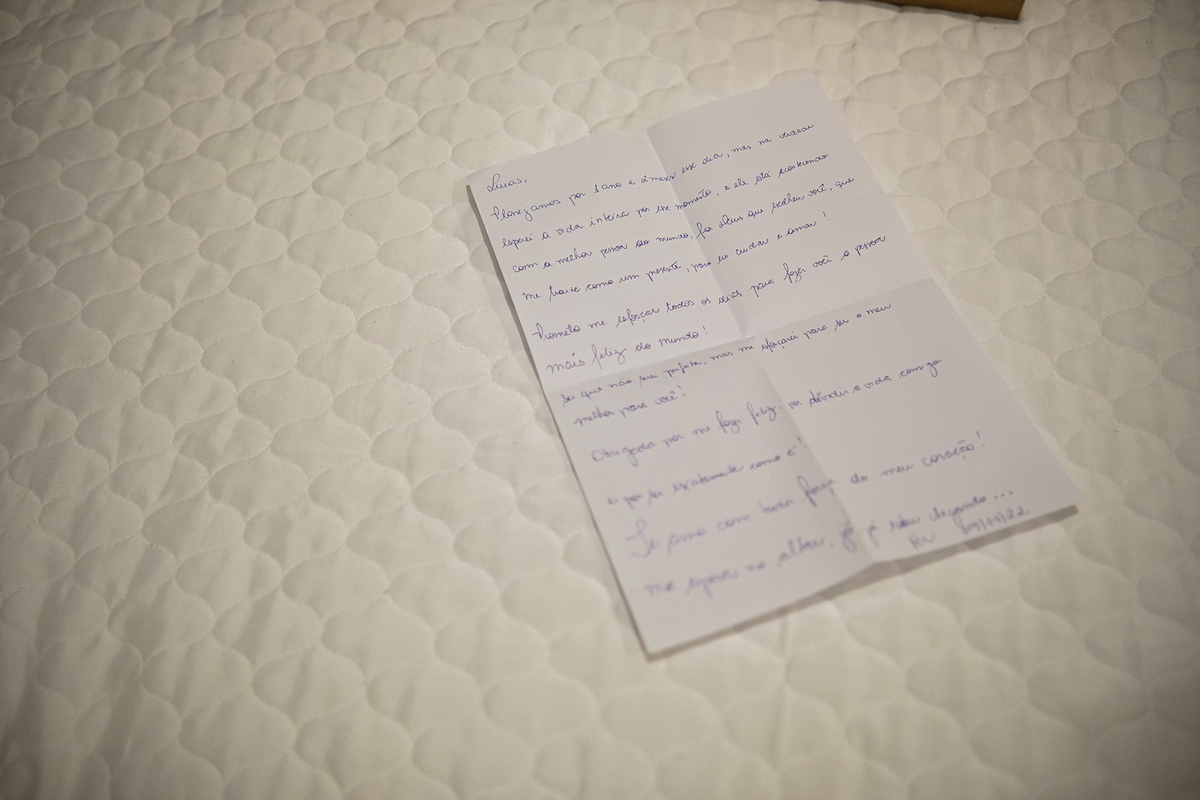 Lucas,
Planejamos por 1 ano e 2 meses esse dia, mas na verdade
esperei a vida inteira por esse momento, e ele está acontecendo
com a melhor pessoa do mundo, foi Deus que escolheu você, que
me trouxe como um presente, para eu cuidar e amar!
Prometo me esforçar todos os dias para fazer você a pessoa
mais feliz do mundo!
Sei que não sou perfeita, mas me esforçarei para ser o meu
melhor para você!
Obrigada por me fazer feliz, por dividir a vida comigo
e por ser exatamente como é!
Te amo com toda força do meu coração!
Me espera no altar, já já estou chegando...